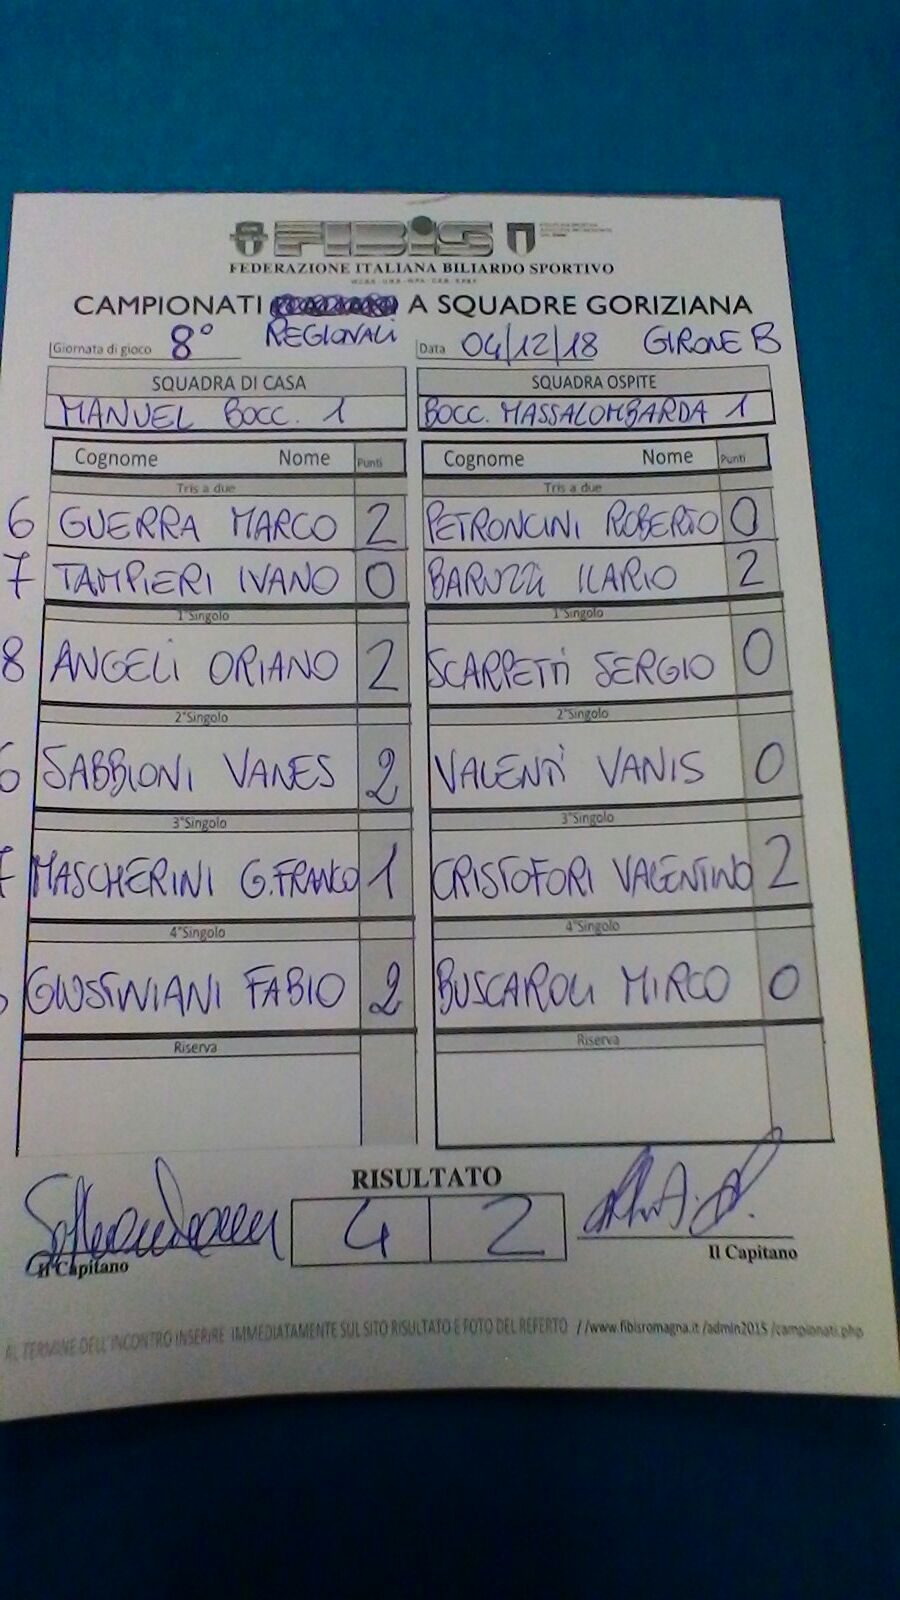 FIBIS
FEDERAZIONE ITALIANA BILIARDO SPORTIVO
CAMPIONATI A SQUADRE GORIZIANA
REGIONALI
Giornata di gioco 8° Data 04/12/18 GIRONE B
SQUADRA DI CASA SQUADRA OSPITE
MANUEL BOCC. 1 BOCC. MASSALOMBARDA 1
Cognome Nome Punti Cognome Nome Punti
Tris a due Tris a due
6 GUERRA MARCO 2 PETRONCINI ROBERTO 0
7 TAMPIERI IVANO 0 BARUZZI ILARIO 2
1°Singolo 1°Singolo
8 ANGELI ORIANO 2 SCARPETTI SERGIO 0
2°Singolo 2°Singolo
SABBIONI VANES 2 VALENTI VANIS 0
3°Singolo 3°Singolo
MASCHERINI G.FRANCO 1 CRISTOFORI VALENTINO 2
4°Singolo 4°Singolo
GIUSTINIANI FABIO 2 BUSCAROLI MIRCO 0
Riserva Riserva
RISULTATO
4 2
Il Capitano Il Capitano
AL TERMINE DELL'INCONTRO INSERIRE IMMEDIATAMENTE SUL SITO RISULTATO E FOTO DEL REFERTO //www.fibisromagna.it/admin2015/campionati.php